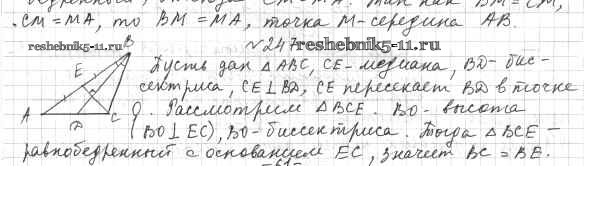 CM = MA, то BM = MA, точка M-середина AB.
№247 reshebnik5-11.ru
reshebnik5-11.ru
B
Пусть дан △ABC, CE-медиана, BD-бис-
E
сектриса, CE⊥BD, CE пересекает BD в точке
A D C
O. Рассмотрим △BCE. BO-высота
(BO⊥EC), BO-биссектриса. Тогда △BCE –
равнобедренный с основанием EC, значит BC = BE.